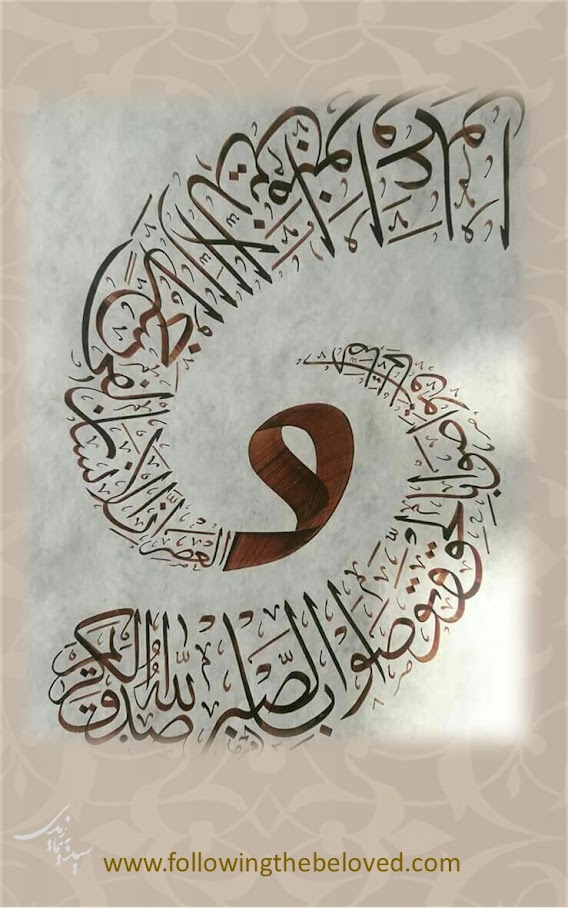 و العصر ان الانسان لفي خسر الا الذين امنوا و عملوا
و تواصوا بالحق و تواصوا بالصبر
صدق الله الكريم
www.followingthebeloved.com